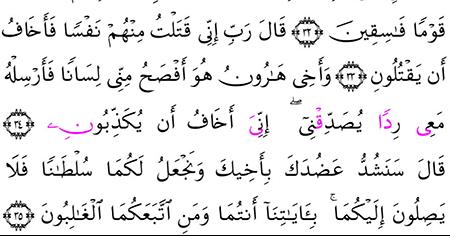 قَوْمًا فَٰسِقِينَ ٣٢ قَالَ رَبِّ إِنِّى قَتَلْتُ مِنْهُمْ نَفْسًا فَأَخَافُ
أَن يَقْتُلُونِ ٣٣ وَأَخِى هَٰرُونُ هُوَ أَفْصَحُ مِنِّى لِسَانًا فَأَرْسِلْهُ
مَعِى رِدًا يُصَدِّقْنِىٓ ۖ إِنِّىَ أَخَافُ أَن يُكَذِّبُونِۦ ٣٤
قَالَ سَنَشُدُّ عَضُدَكَ بِأَخِيكَ وَنَجْعَلُ لَكُمَا سُلْطَٰنًا فَلَا
يَصِلُونَ إِلَيْكُمَا ۚ بِـَٔايَٰتِنَآ أَنتُمَا وَمَنِ ٱتَّبَعَكُمَا ٱلْغَٰلِبُونَ ٣٥